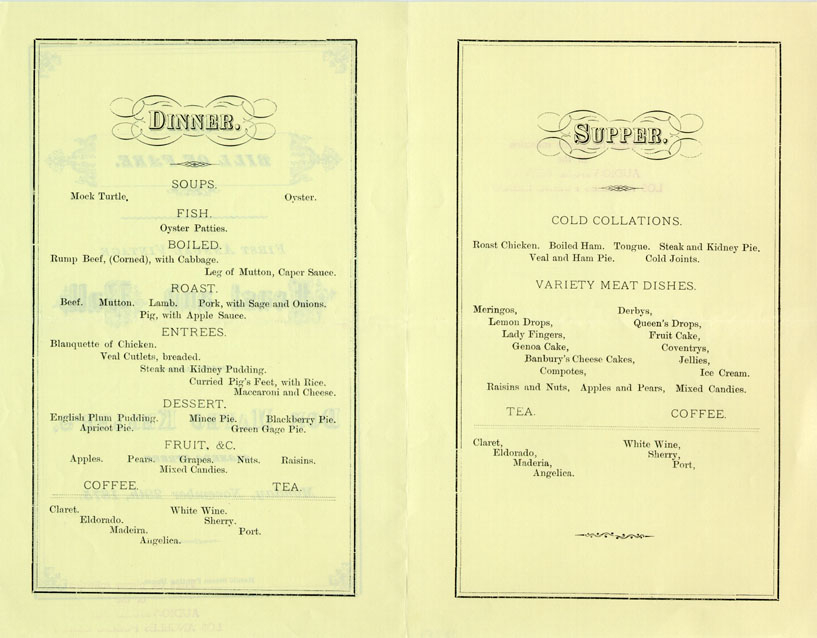 DINNER.
SOUPS.
Mock Turtle, Oyster.
FISH.
Oyster Patties.
BOILED.
Rump Beef, (Corned), with Cabbage.
Leg of Mutton, Caper Sauce.
ROAST.
Beef. Mutton. Lamb. Pork, with Sage and Onions.
Pig, with Apple Sauce.
ENTREES.
Blanquette of Chicken.
Veal Cutlets, breaded.
Steak and Kidney Pudding.
Curried Pig's Feet, with Rice.
Maccaroni and Cheese.
DESSERT.
English Plum Pudding. Mince Pie. Blackberry Pie.
Apricot Pie. Green Gage Pie.
FRUIT, &C.
Apples. Pears. Grapes. Nuts. Raisins.
Mixed Candies.
COFFEE. TEA.
Claret. White Wine.
Eldorado. Sherry.
Madeira. Port.
Angelica.
SUPPER.
COLD COLLATIONS.
Roast Chicken. Boiled Ham. Tongue. Steak and Kidney Pie.
Veal and Ham Pie. Cold Joints.
VARIETY MEAT DISHES.
Meringos, Derbys,
Lemon Drops, Queen's Drops,
Lady Fingers, Fruit Cake,
Genoa Cake, Coventrys,
Banbury's Cheese Cakes, Jellies,
Compotes, Ice Cream.
Raisins and Nuts, Apples and Pears, Mixed Candies.
TEA. COFFEE.
Claret, White Wine,
Eldorado, Sherry,
Maderia, Port,
Angelica.